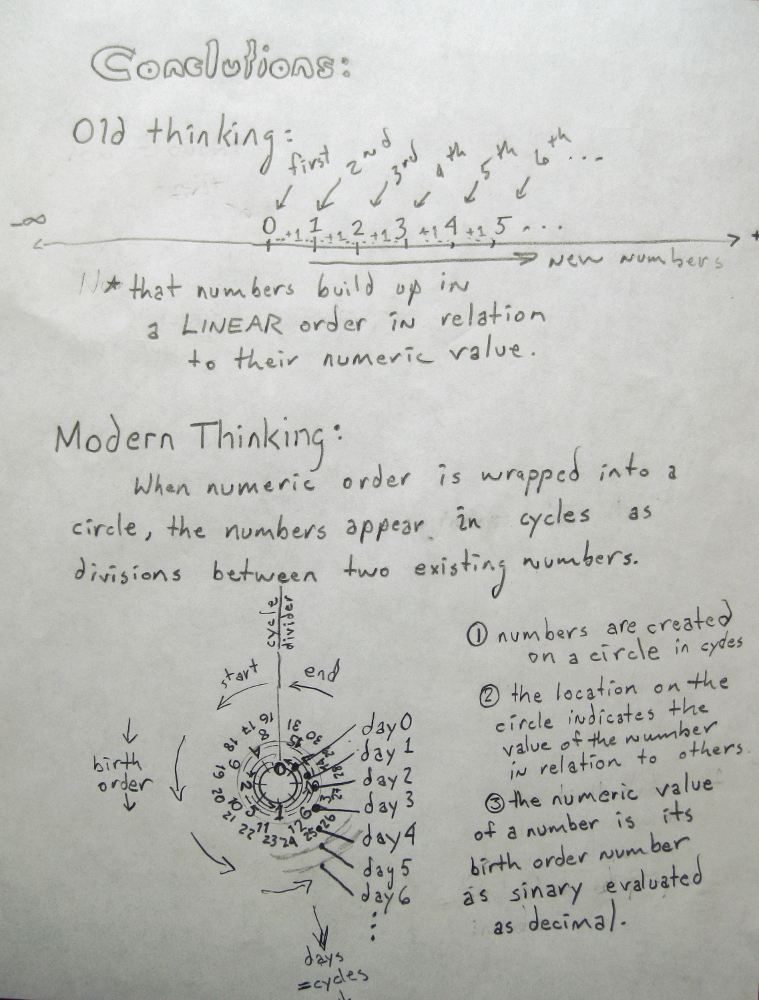 Conclutions:
Old thinking:
first 2nd 3rd 4th 5th 6th ...
-∞ 0 +1 1 +1 2 +1 3 +1 4 +1 5 ... +
new numbers
* that numbers build up in
a LINEAR order in relation
to their numeric value.
Modern Thinking:
When numeric order is wrapped into a
circle, the numbers appear in cycles as
divisions between two existing numbers.
cycle
divider
start
end
birth
order
day 0
day 1
day 2
day 3
day 4
day 5
day 6
16 17 18 19 20 21 22 23 24 25 26 27 28 29 30 31
8 9 10 11 12
4 5 6
2 3
1
0
days
=cycles
① numbers are created
on a circle in cycles
② the location on the
circle indicates the
value of the number
in relation to others.
③ the numeric value
of a number is its
birth order number
as sinary evaluated
as decimal.